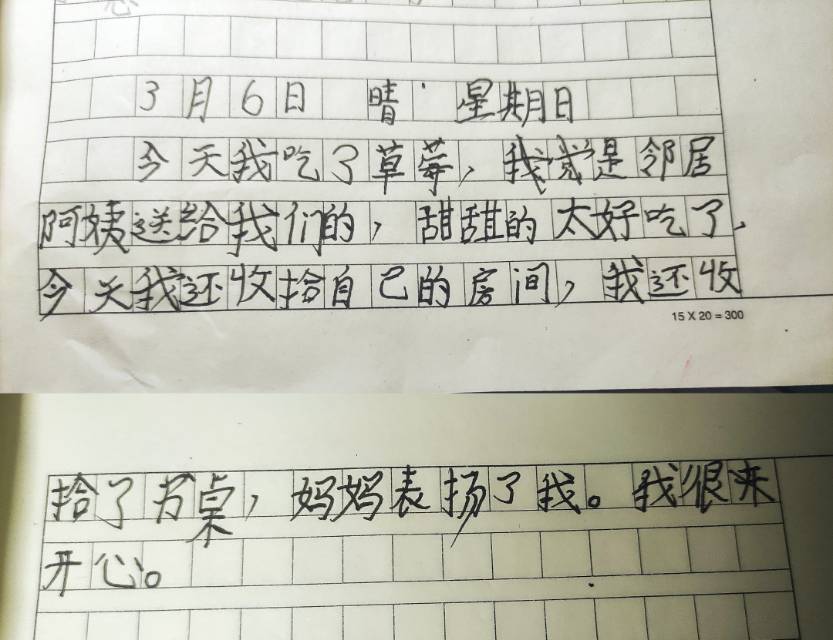 3月6日 晴 星期日
今天我吃了草莓，是邻居
阿姨送给我们的，甜甜的太好吃了，
今天我还收拾自己的房间，我还收
15 X 20 = 300
拾了书桌，妈妈表扬了我。我很来
开心。